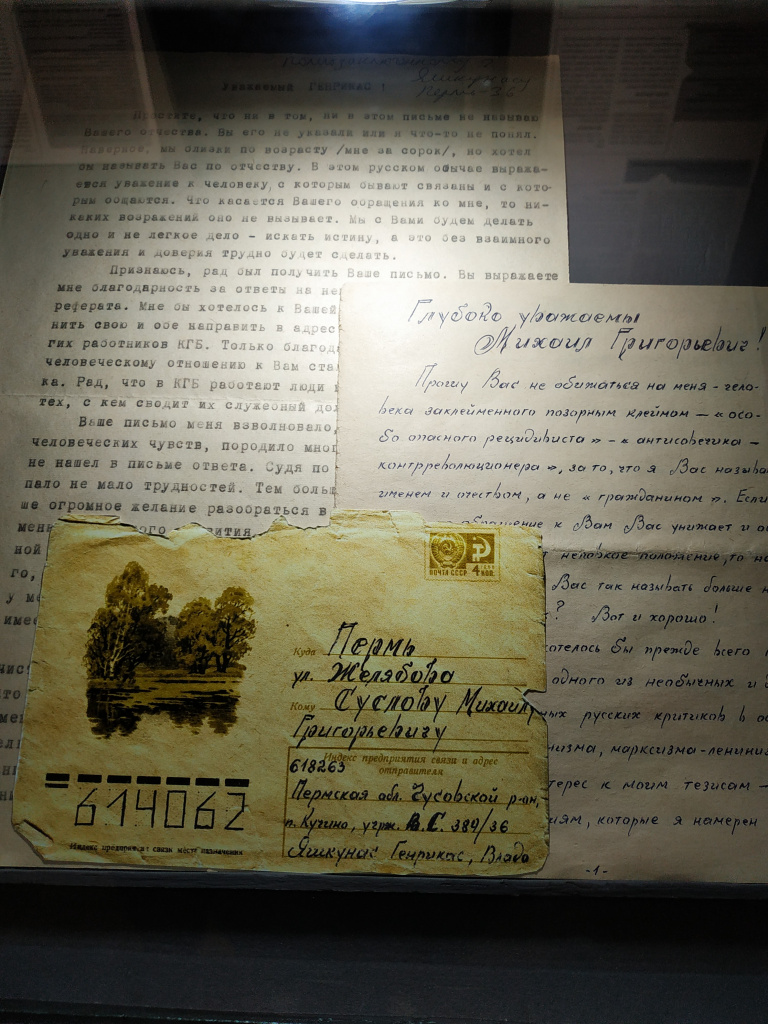 Яшкунасу
Пермь-36
Уважаемый ГЕНРИКАС !
Простите, что ни в том, ни в этом письме не называл
Вашего отчества. Вы его не указали или я что-то не понял.
Наверное, мы близки по возрасту /мне за сорок/, но хотел
бы называть Вас по отчеству. В этом русском обычае выража-
ется уважение к человеку, с которым бывают связаны и с кото-
рым общаются. Что касается Вашего обращения ко мне, то ни-
каких возражений оно не вызывает. Мы с Вами будем делать
одно и не легкое дело - искать истину, а это без взаимного
уважения и доверия трудно будет сделать.
Признаюсь, рад был получить Ваше письмо. Вы выражаете
мне благодарность за ответы на не
реферата. Мне бы хотелось к Вашей
нить свою и обе направить в адрес
гих работников КГБ. Только благод
человеческому отношению к Вам ста
ка. Рад, что в КГБ работают люди
тех, с кем сводит их служебный дол
Ваше письмо меня взволновало,
человеческих чувств, породило мног
не нашел в письме ответа. Судя по
пало не мало трудностей. Тем больш
ше огромное желание разобраться в
мен ого развития
ной
го,
у м
имее
Глубоко уважаемы
Михаил Григорьевич!
Прошу Вас не обижаться на меня - чело-
века заклейменного позорным клеймом — «осо-
бо опасного рецидивиста» - «антисоветчика -
контрреволюционера», за то, что я Вас называ
именем и очеством, а не «гражданином». Если
обращение к Вам Вас унижает и о
неловкое положение, то н
Вас так называть больше н
? Вот и хорошо!
хотелось бы прежде всего
одного из необычных и
ных русских критиков в о
низма, марксизма-лениниз
терес к моим тезисам —
иям, которые я намерен
-1-
ПОЧТА СССР 4 КОП.
Куда Пермь
ул. Желябова
Кому Суслову Михаилу
Григорьевичу
Индекс предприятия связи и адрес
отправителя
618263
Пермская обл. Чусовской р-он,
п. Кучино, учрж. В.С. 389/36
Яшкунас Генрикас, Владо
614062
Индекс предприятия связи места назначения